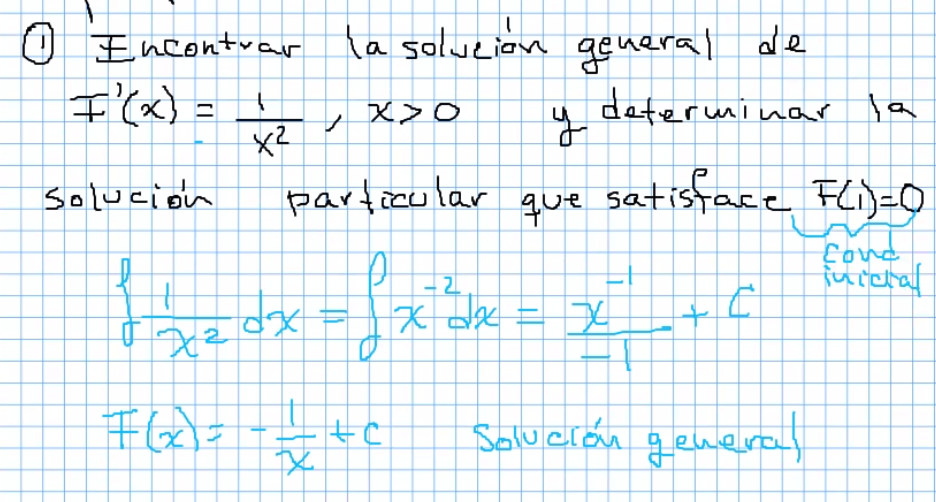 ① Encontrar la solución general de
F'(x) = 1/x², x > 0 y determinar la
solución particular que satisface F(1)=0
cond
inicial
∫ 1/x² dx = ∫ x⁻² dx = x⁻¹/-1 + C
F(x) = -1/x + C solución general